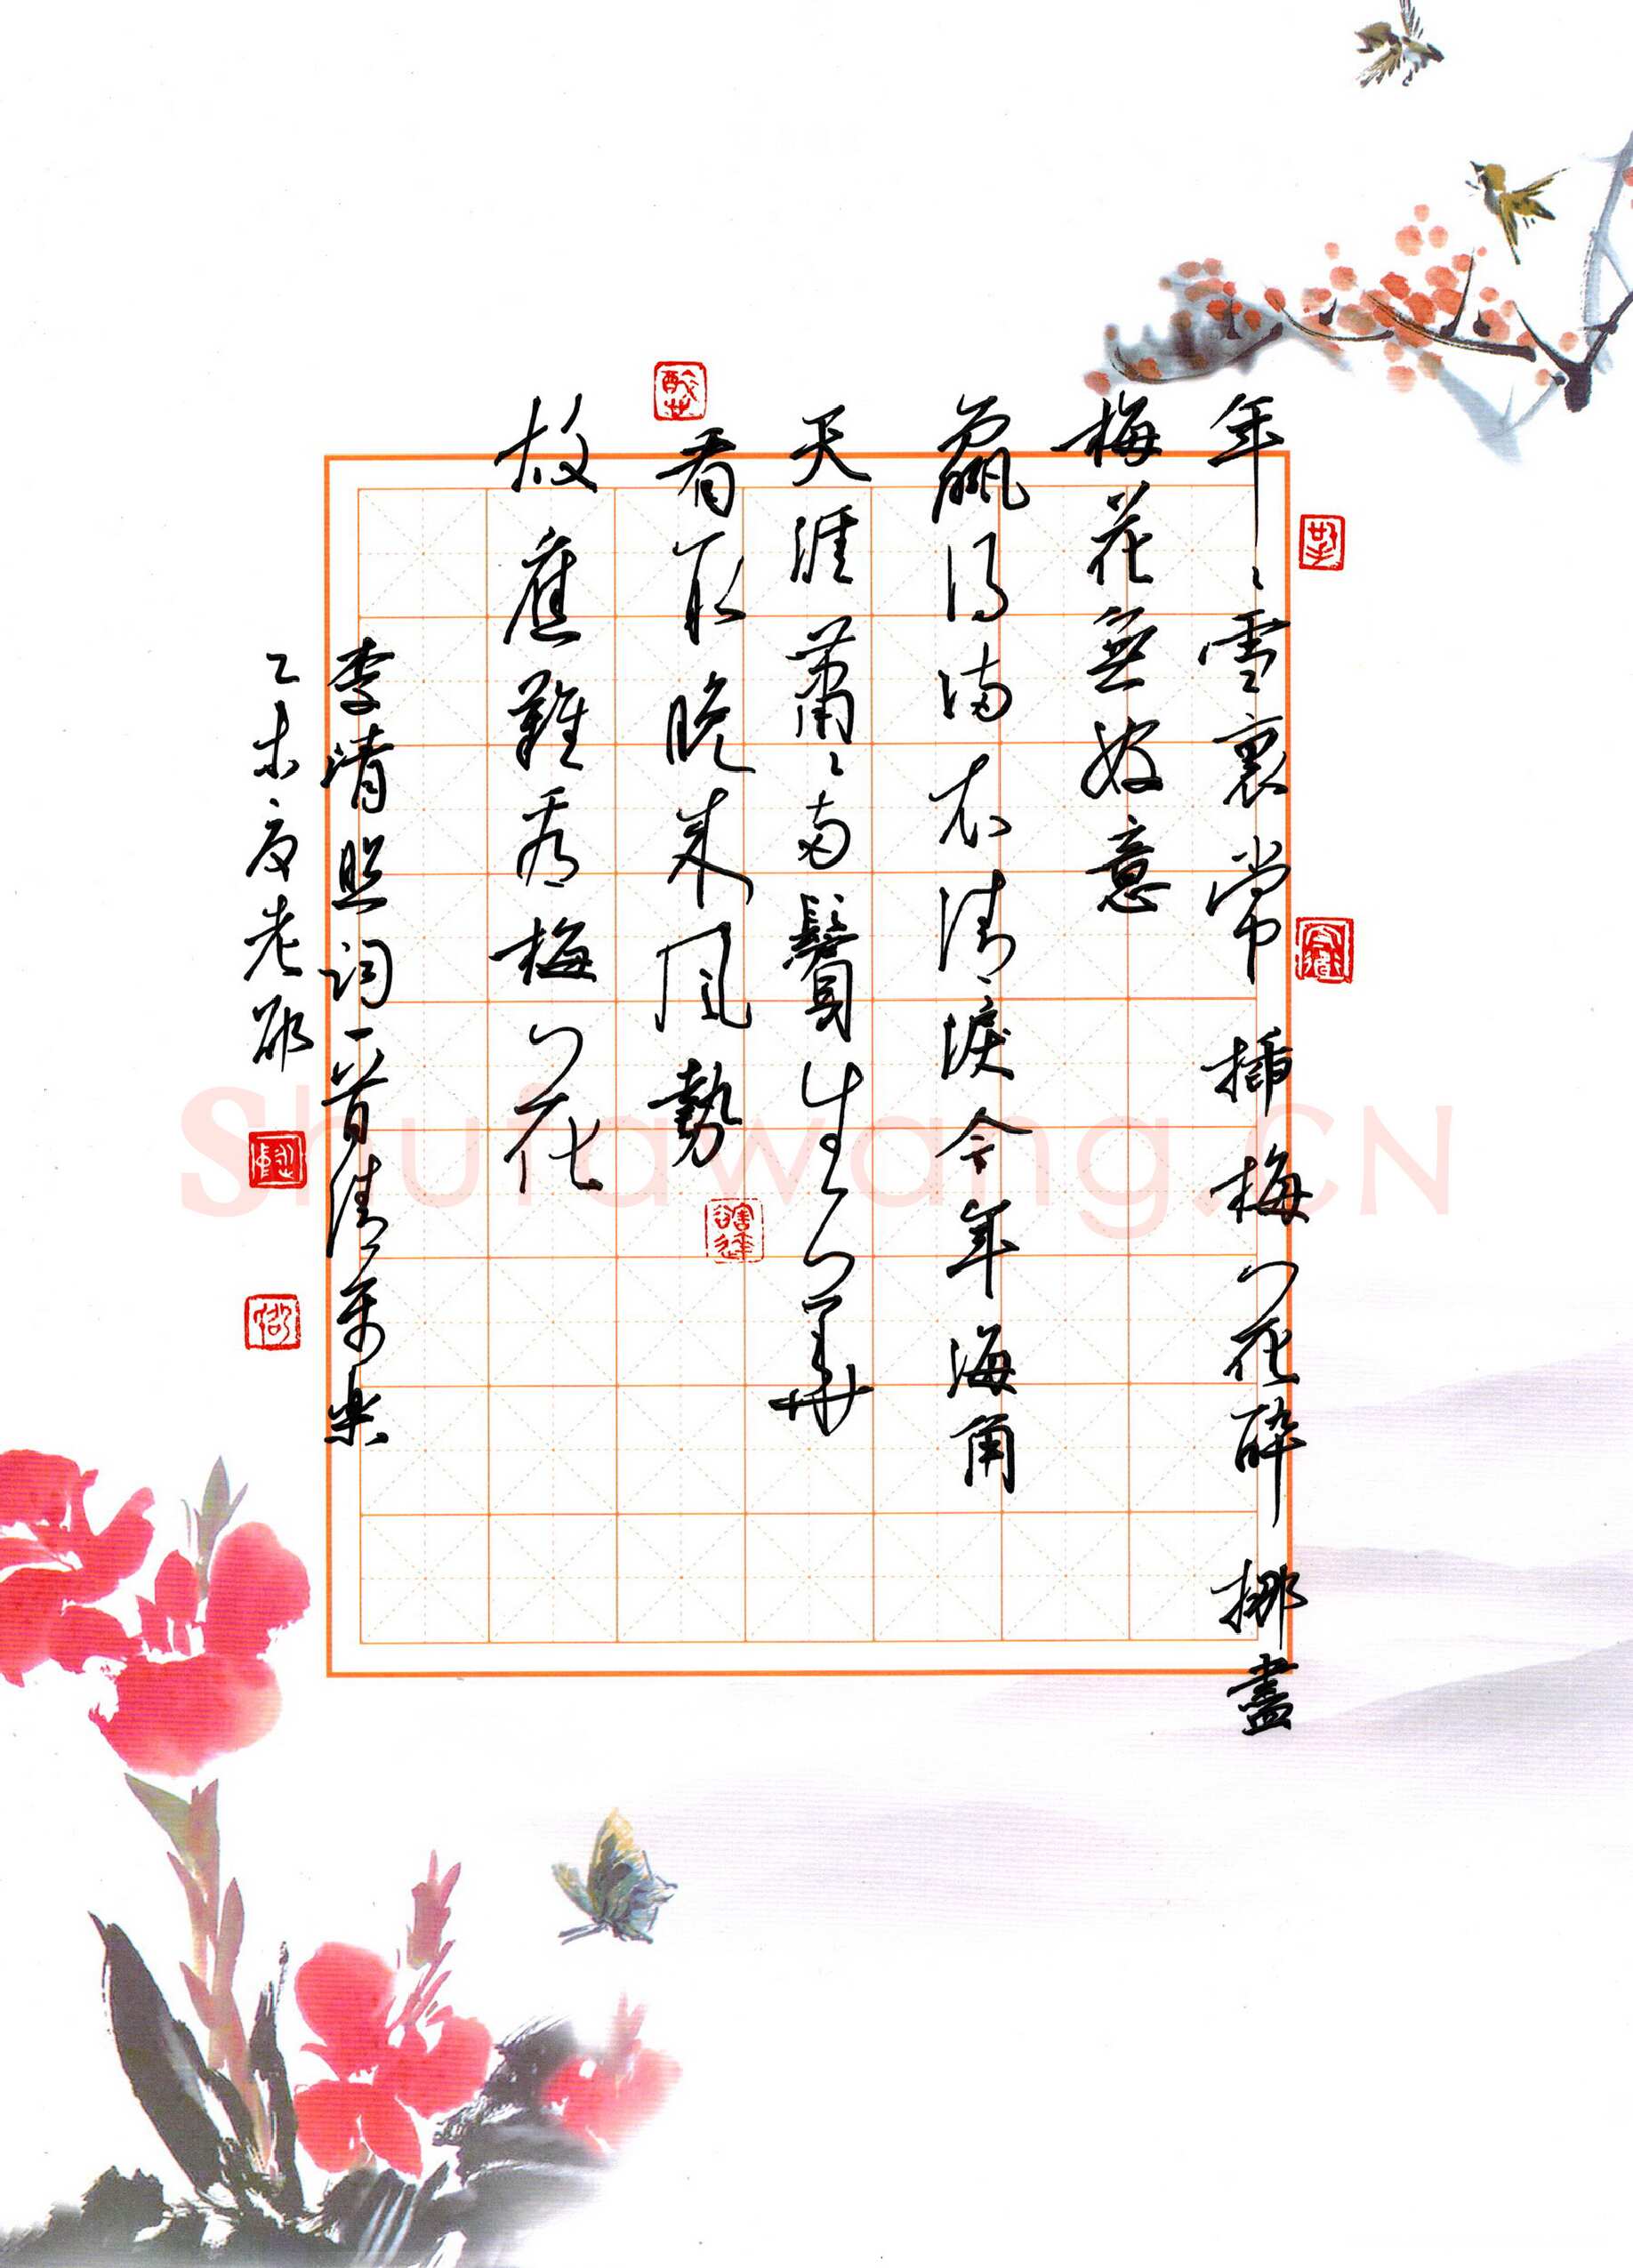 年々雪裏常插梅花醉挪盡
梅花無好意
贏得滿衣清淚今年海角
天涯蕭々兩鬢生華
看取晚來風勢
故應難看梅花
李清照詞一首清平樂
乙未夏老邪
Shufawang.CN